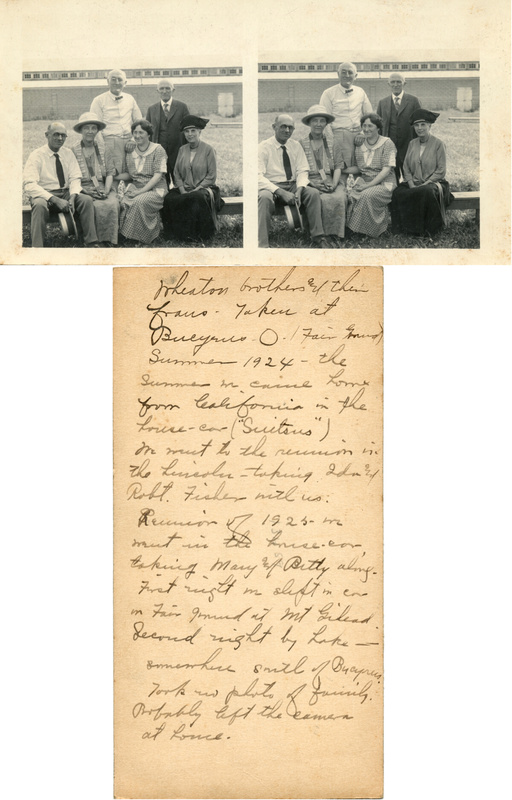 Wheaton brothers & their
fraus - Taken at
Bucyrus - O. (Fair Grounds)
Summer 1924 - the
Summer we came home
from California in the
house-car ("Suitsus")
We went to the reunion in
the Lincoln - taking Ida &
Robt. Fisher with us.
Reunion of 1925 - we
went in the house-car,
taking Mary & Betty along.
First night we slept in car
in Fair ground at Mt Gilead
Second night by lake -
somewhere south of Bucyrus.
Took no photo of family.
Probably left the camera
at home.